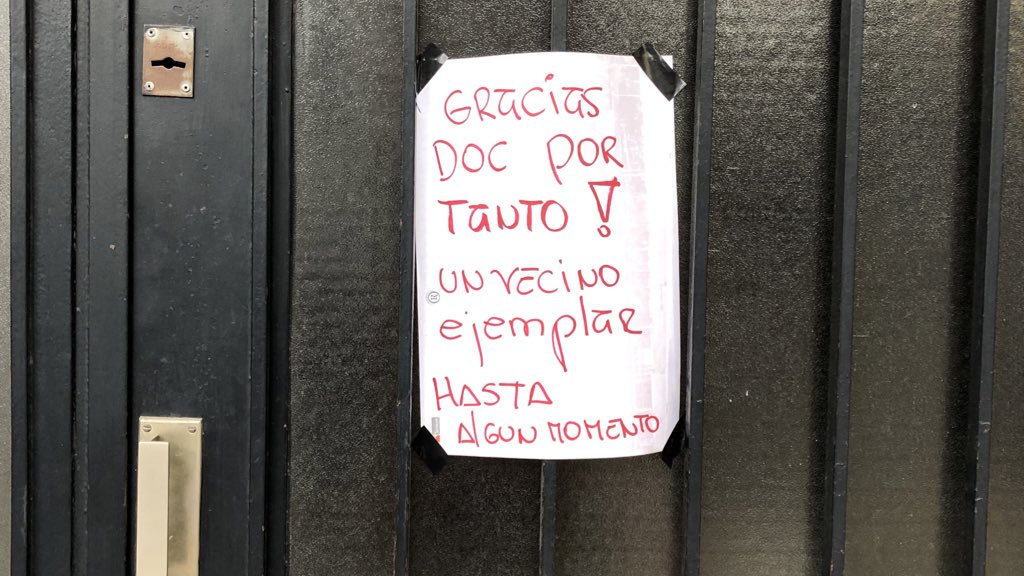 GRacias
DOC POR
Tanto!
UN VECINO
ejemplar
HASTA
AlGUN MOMENTO